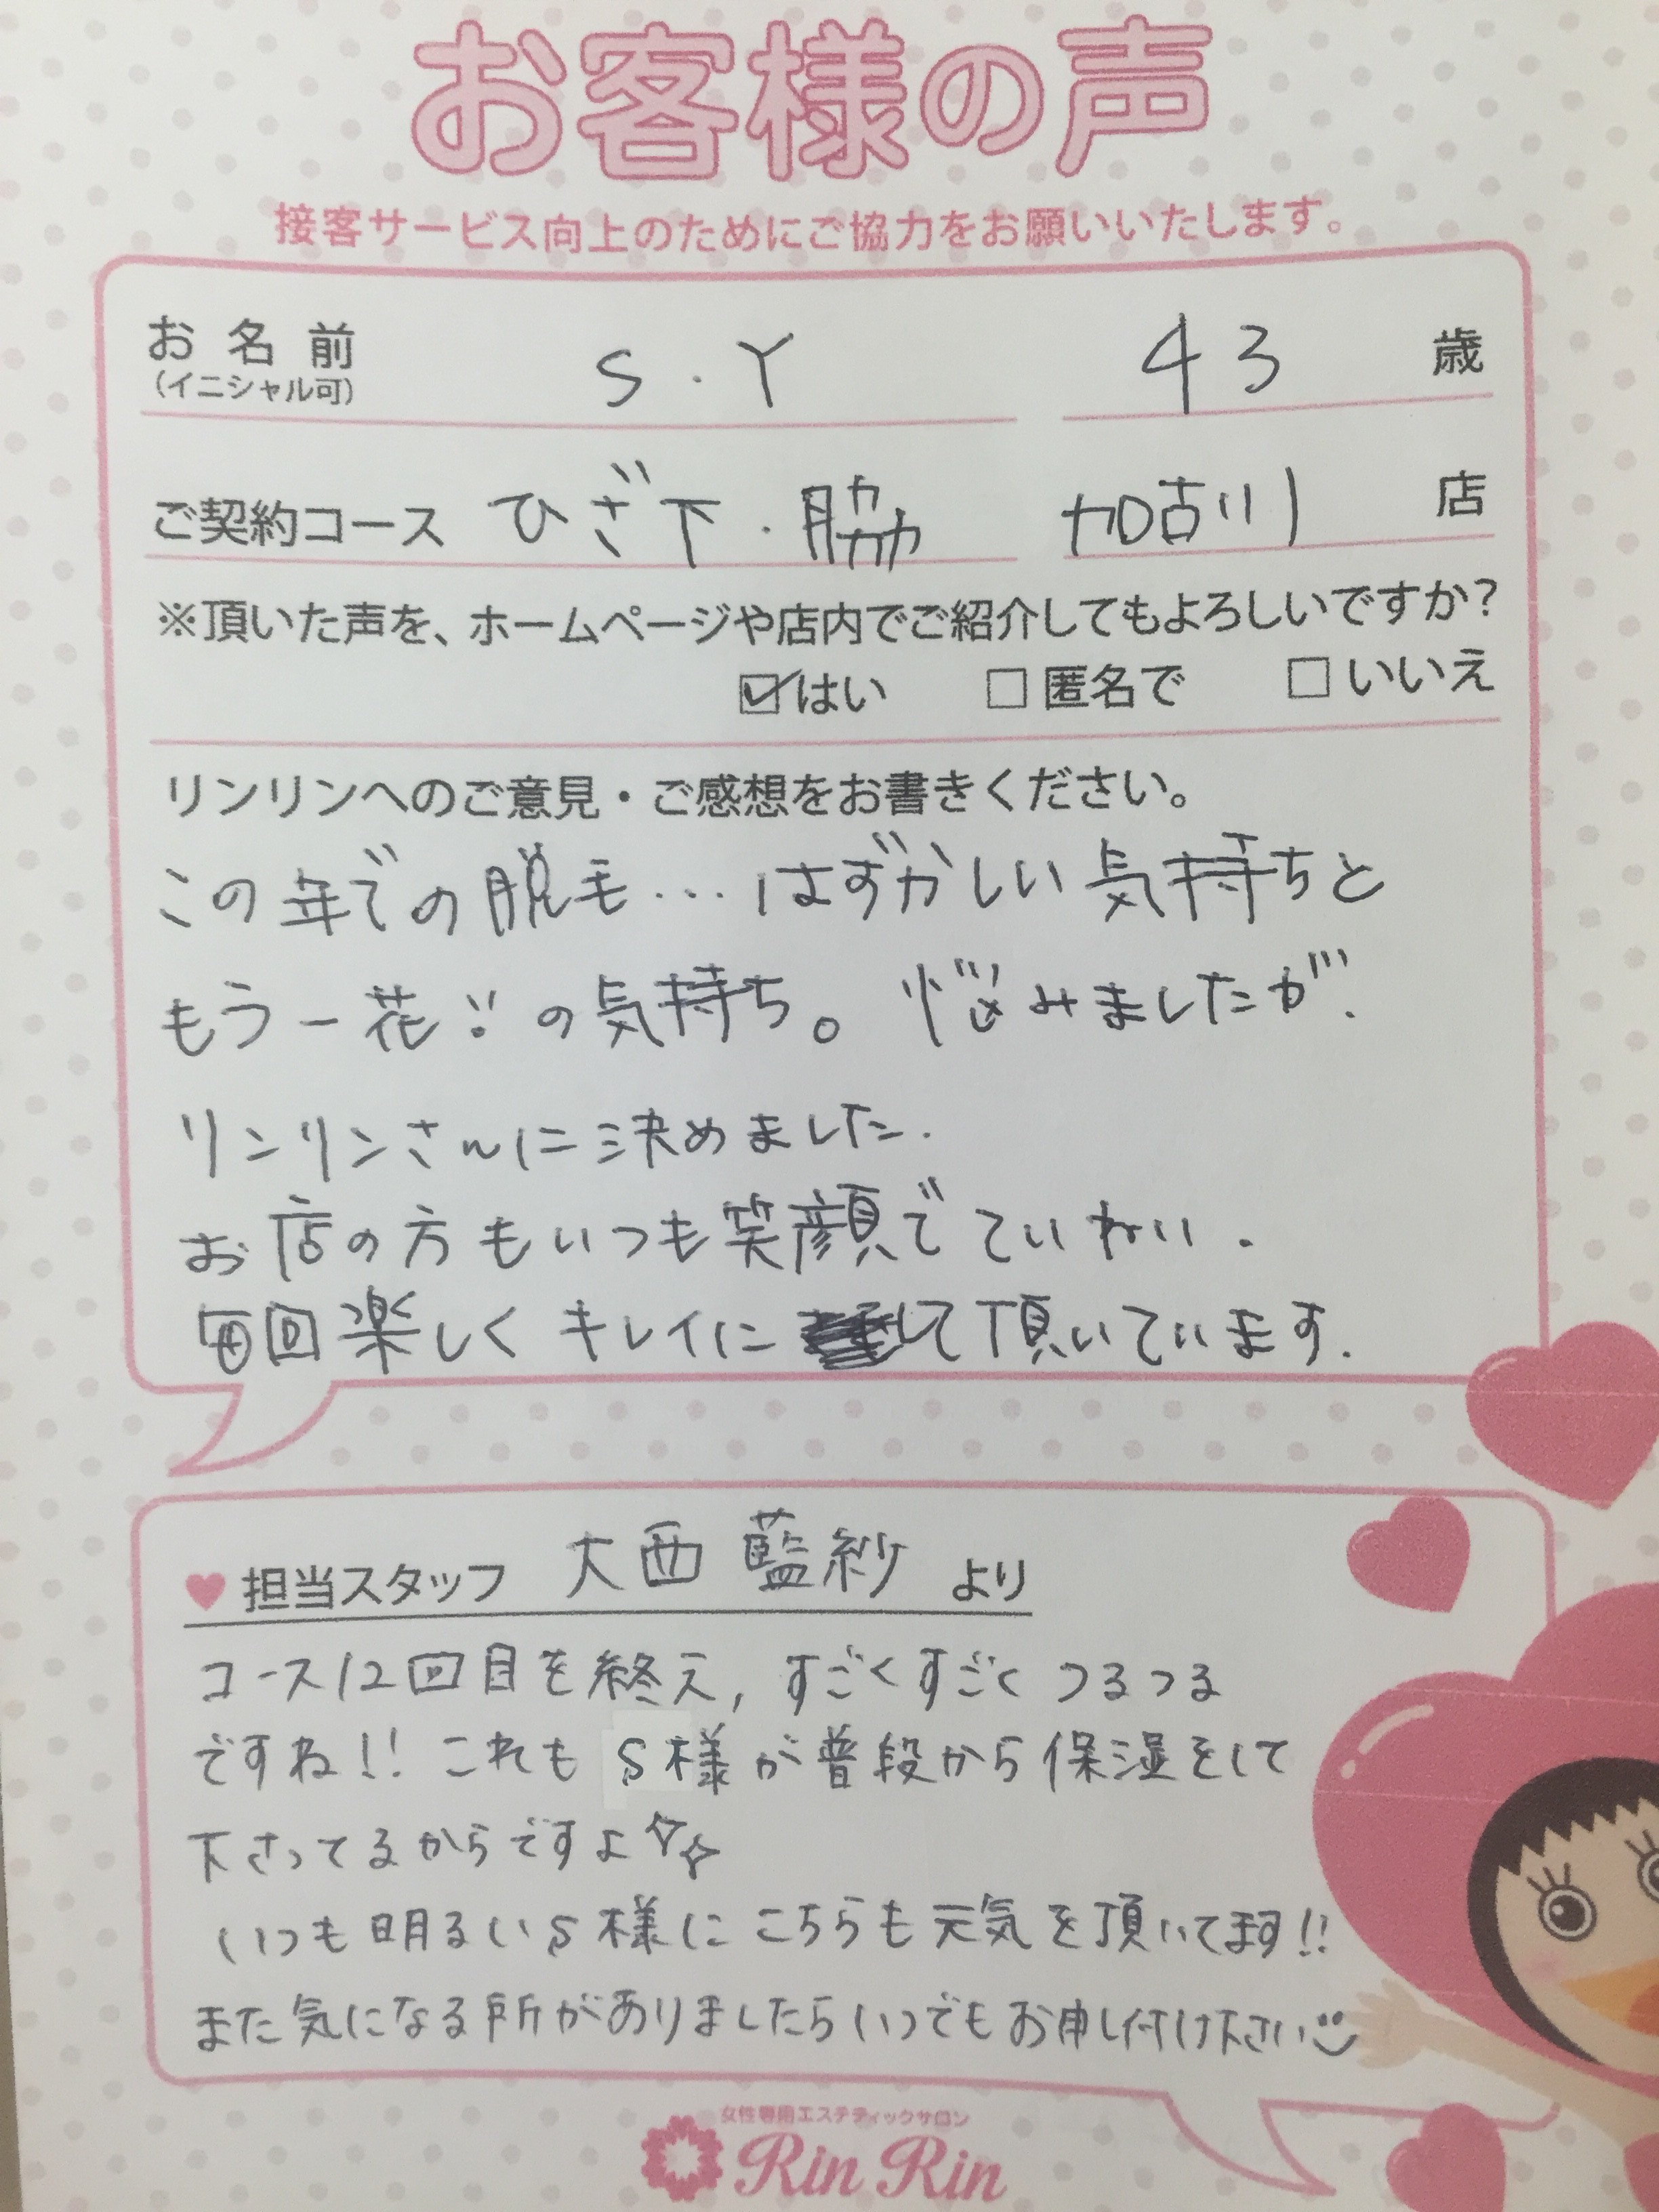 お客様の声
接客サービス向上のためにご協力をお願いいたします。
お名前 S.Y 43 歳
(イニシャル可)
ご契約コース ひざ下・脇 加古川 店
※頂いた声を、ホームページや店内でご紹介してもよろしいですか?
☑はい □匿名で □いいえ
リンリンへのご意見・ご感想をお書きください。
この年での脱毛…はずかしい気持ちと
もう一花!!の気持ち。悩みましたが、
リンリンさんに決めました.
お店の方もいつも笑顔でていねい.
毎回楽しくキレイにして頂いています.
♥担当スタッフ 大西 藍紗 より
コース12回目を終え,すごくすごくつるつる
ですね!!これもS様が普段から保湿をして
下さってるからですよ
いつも明るいS様にこちらも元気を頂いてます!!
また気になる所がありましたらいつでもお申し付け下さい
女性専用エステティックサロン
Rin Rin